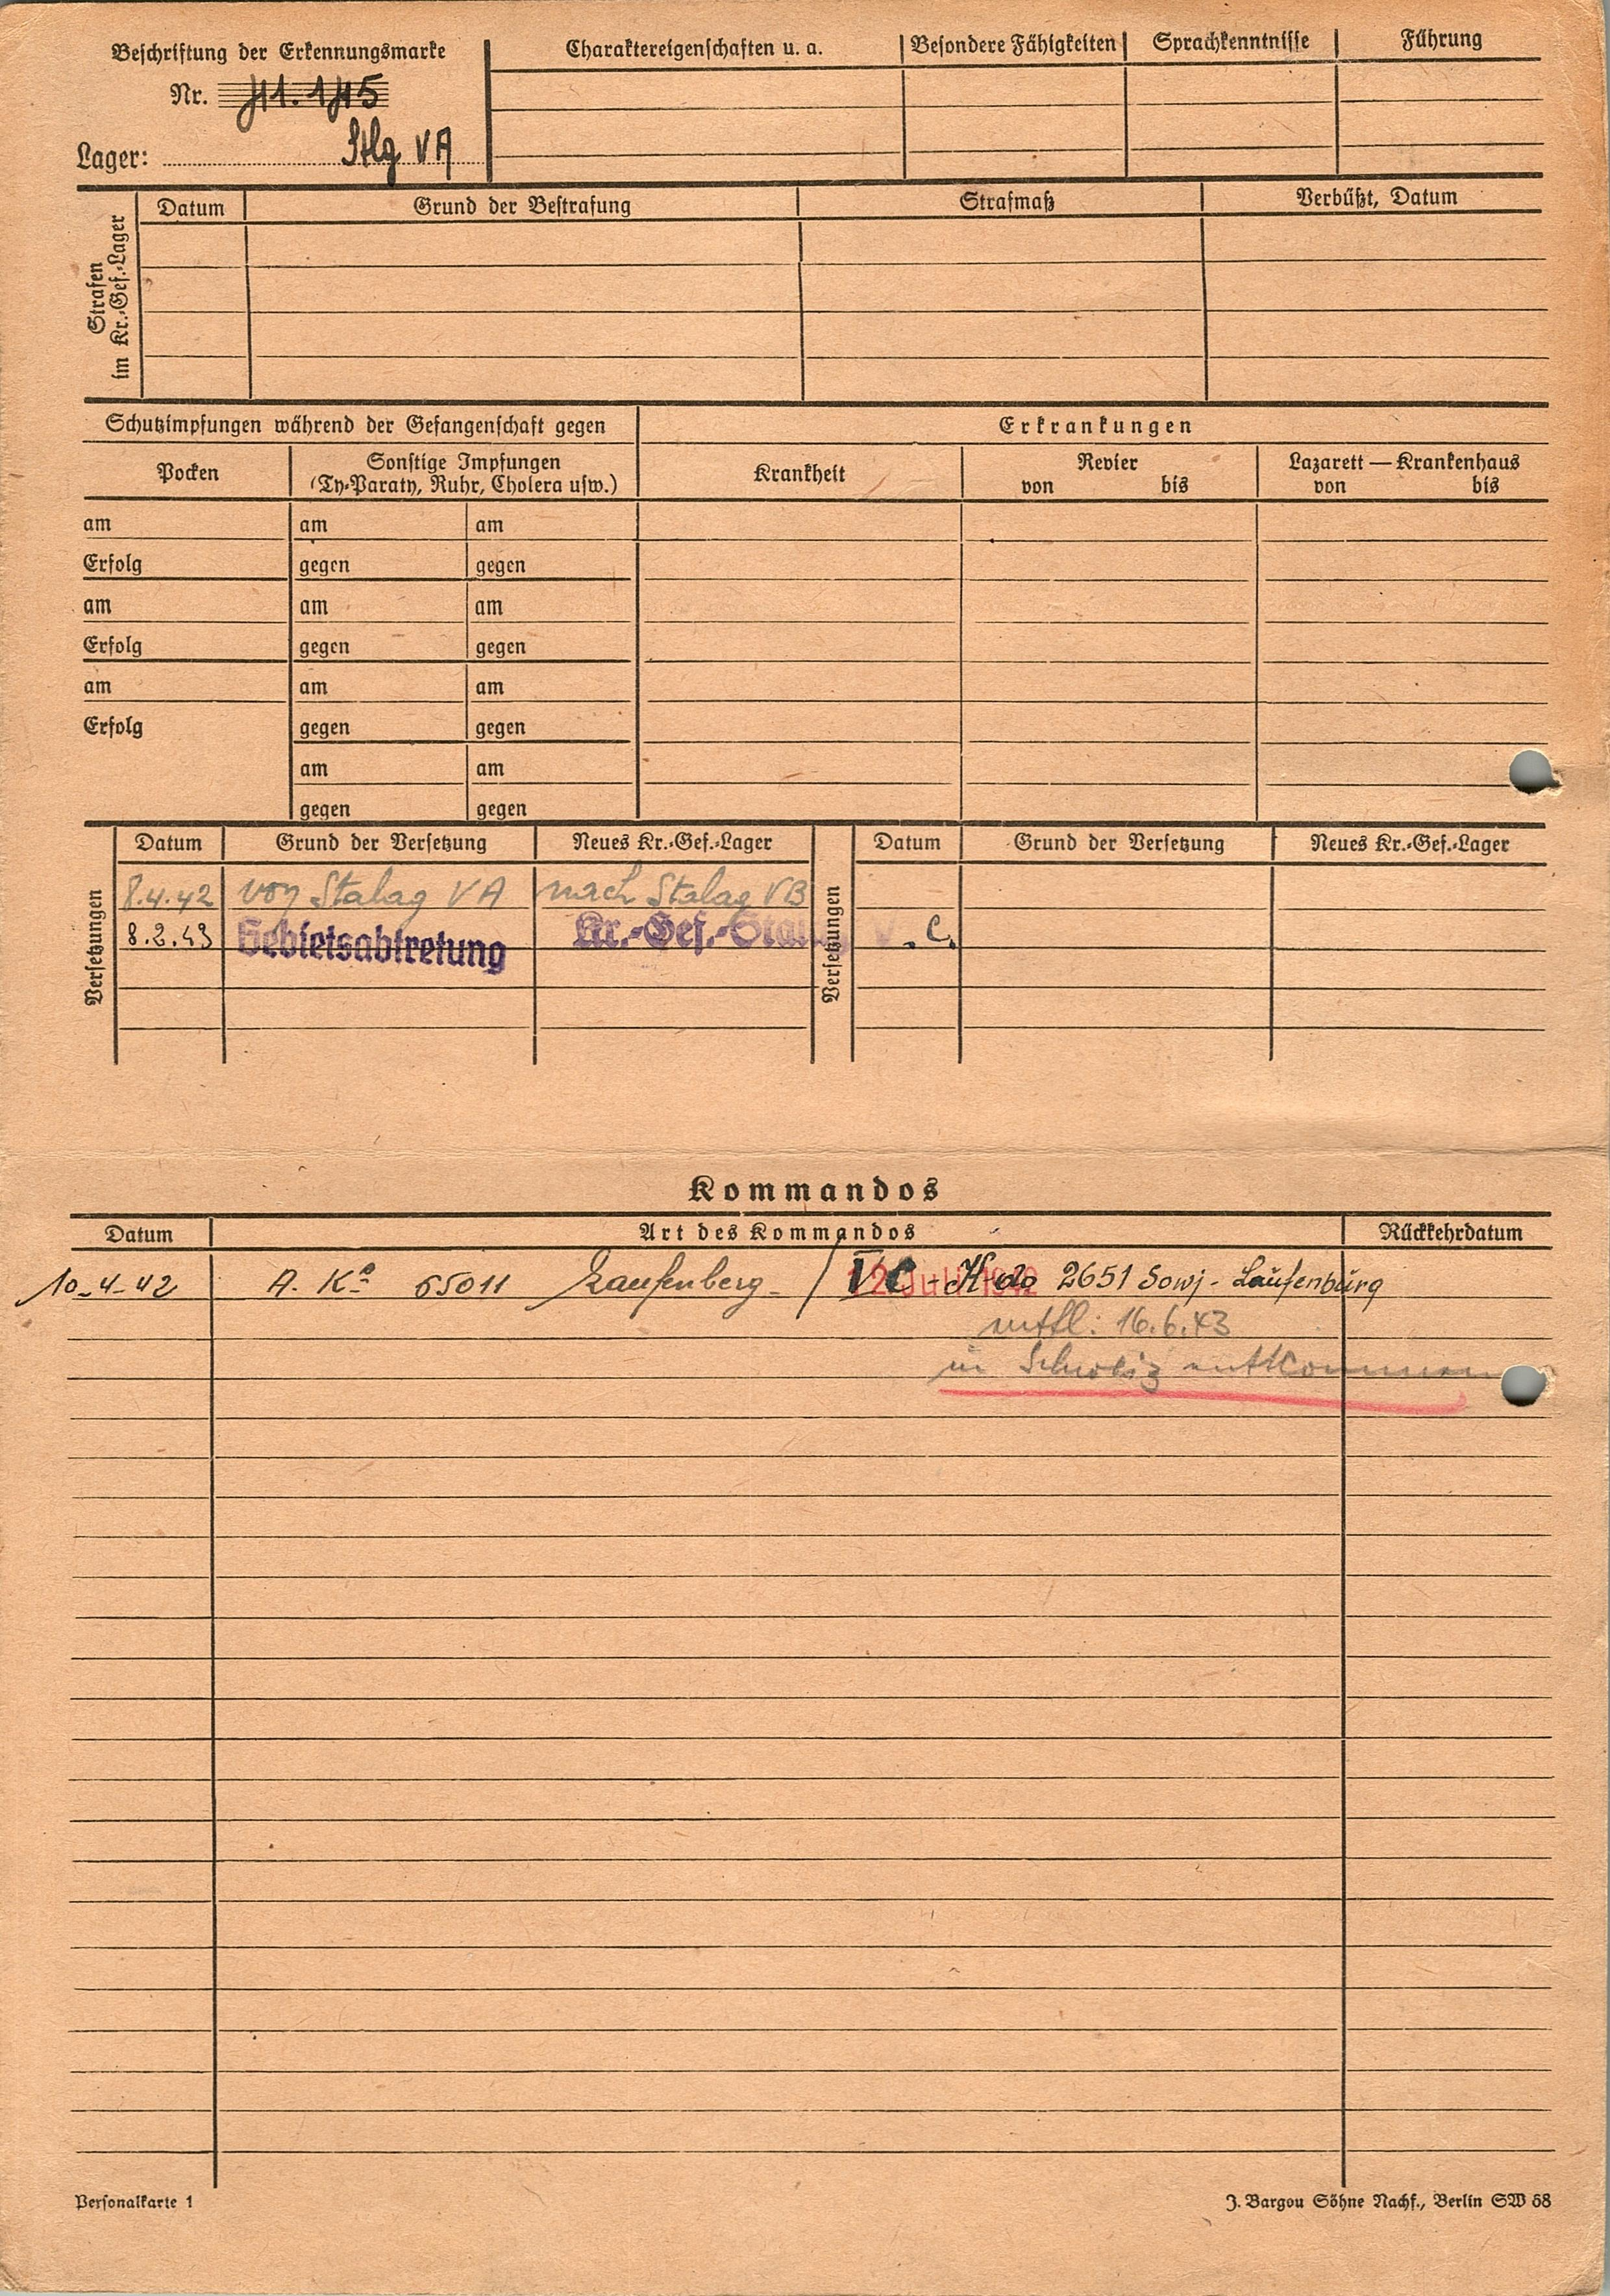 Beschriftung der Erkennungsmarke
Nr. 41.145
Lager: Stlg VA
Charaktereigenschaften u. a. Besondere Fähigkeiten Sprachkenntnisse Führung
Strafen im Kr.-Gef.-Lager
Datum Grund der Bestrafung Strafmaß Verbüßt, Datum
Schutzimpfungen während der Gefangenschaft gegen Erkrankungen
Pocken Sonstige Impfungen Krankheit Revier Lazarett — Krankenhaus
(Ty-Paraty, Ruhr, Cholera usw.) von bis von bis
am am am
Erfolg gegen gegen
am am am
Erfolg gegen gegen
am am am
Erfolg gegen gegen
am am
gegen gegen
Versetzungen Datum Grund der Versetzung Neues Kr.-Gef.-Lager Versetzungen Datum Grund der Versetzung Neues Kr.-Gef.-Lager
8.4.42 von Stalag VA nach Stalag VB
8.2.43 Gebietsabtretung Kr.-Gef.-Stalag V.C.
Kommandos
Datum Art des Kommandos Rückkehrdatum
10-4-42 A. Kº 65011 Laufenberg - / VC - Kdo 2651 Sowj - Laufenburg
12. Juli 1942
entfl: 16.6.43
in Schweiz entkommen
Personalkarte 1 J. Bargou Söhne Nachf., Berlin SW 68